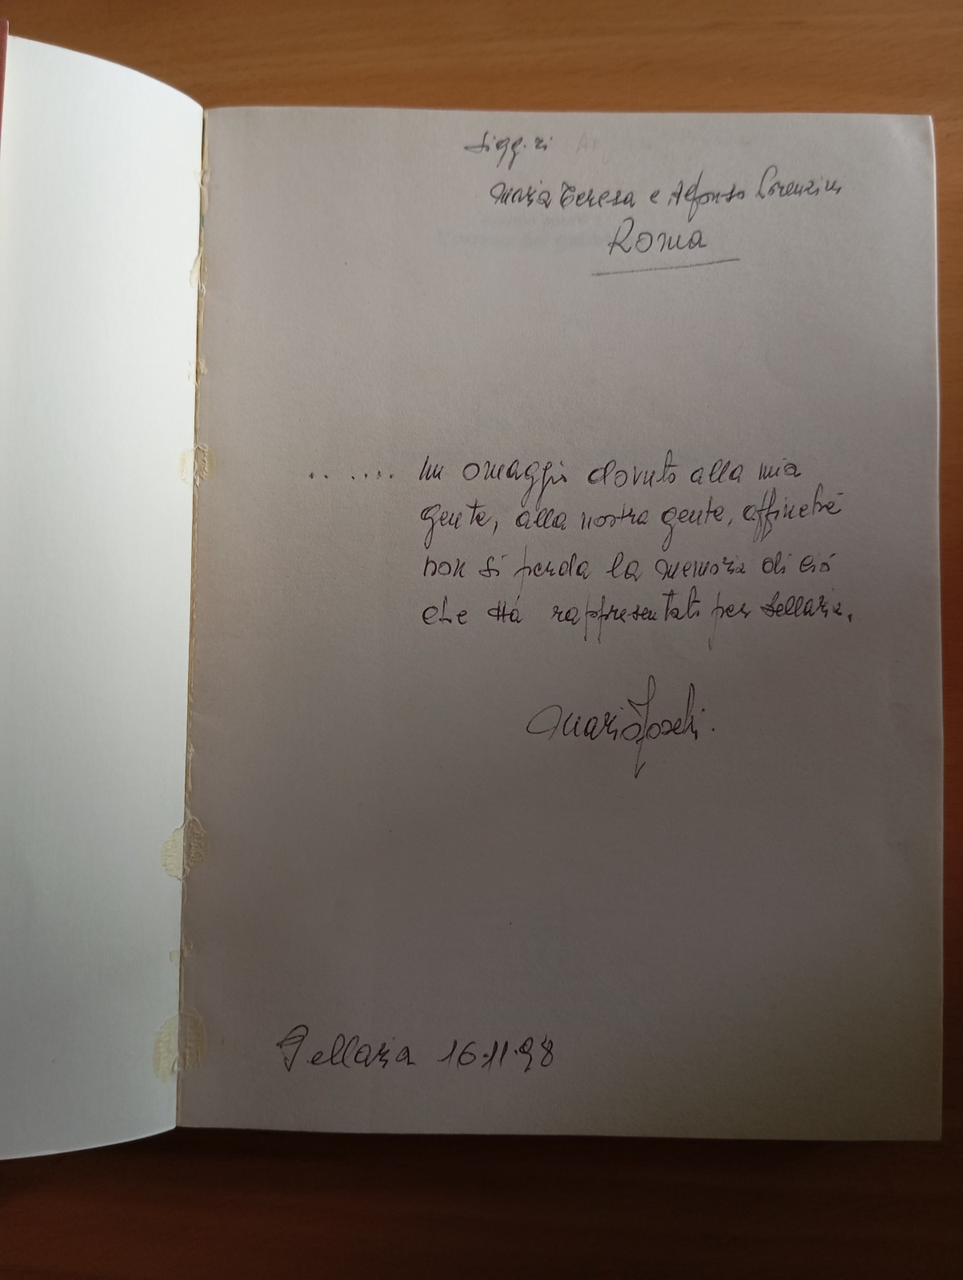 Sigg.ri
Maria Teresa e Alfonso Lorenzini
Roma
........ un omaggio dovuto alla mia
gente, alla nostra gente, affinchè
non si perda la memoria di ciò
che Há rappresentato per Bellaria.
Mario Foschi.
Bellaria 16.11.98